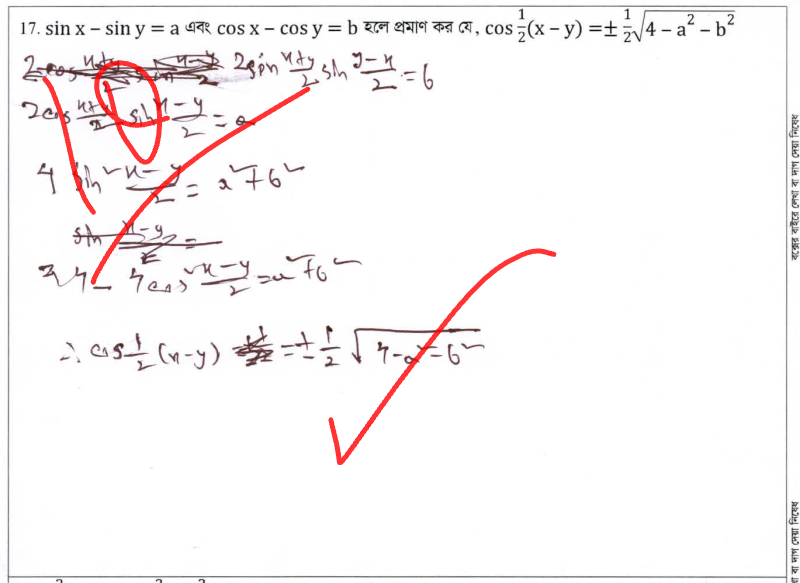 17. sin x − sin y = a এবং cos x − cos y = b হলে প্রমাণ কর যে, cos 1/2 (x − y) = ± 1/2 √(4 − a² − b²)
2 sin (x+y)/2 sin (y−x)/2 = b
2 cos (x+y)/2 sin (x−y)/2 = a
4 sin² (x−y)/2 = a² + b²
4 − 4 cos² (x−y)/2 = a² + b²
∴ cos 1/2 (x−y) = ± 1/2 √(4 − a² − b²)
বক্সের বাইরে লেখা বা দাগ দেয়া নিষেধ
বা দাগ দেয়া নিষেধ